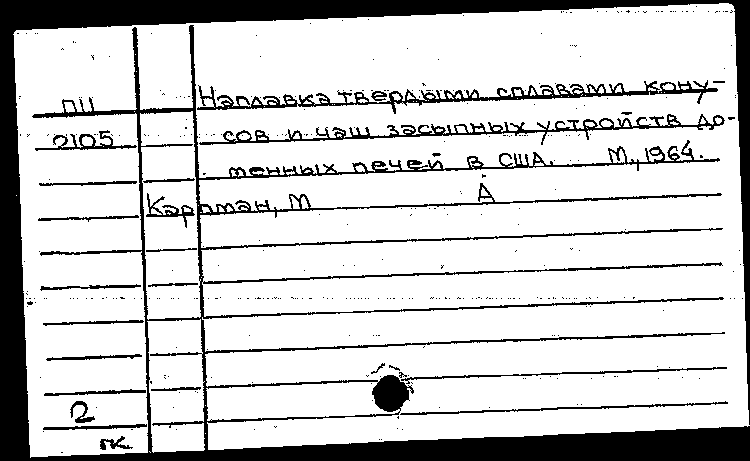 ПЦ Наплавка твердыми сплавами кону-
2105 сов и чаш засыпных устройств до-
менных печей в США. М., 1964.
Карпман, М А
2
пк